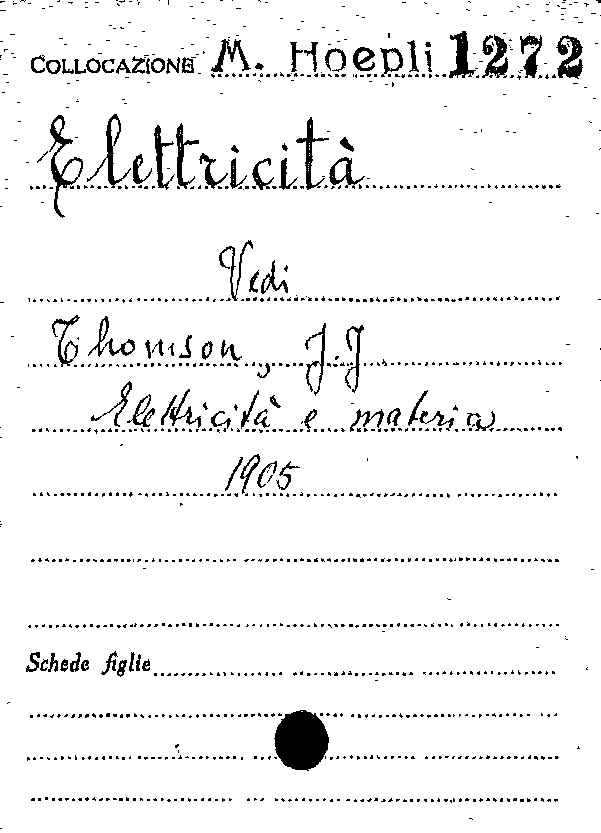 COLLOCAZIONE M. Hoepli 1272
Elettricità
Vedi
Thomson, J.J.
Elettricità e materia
1905
Schede figlie